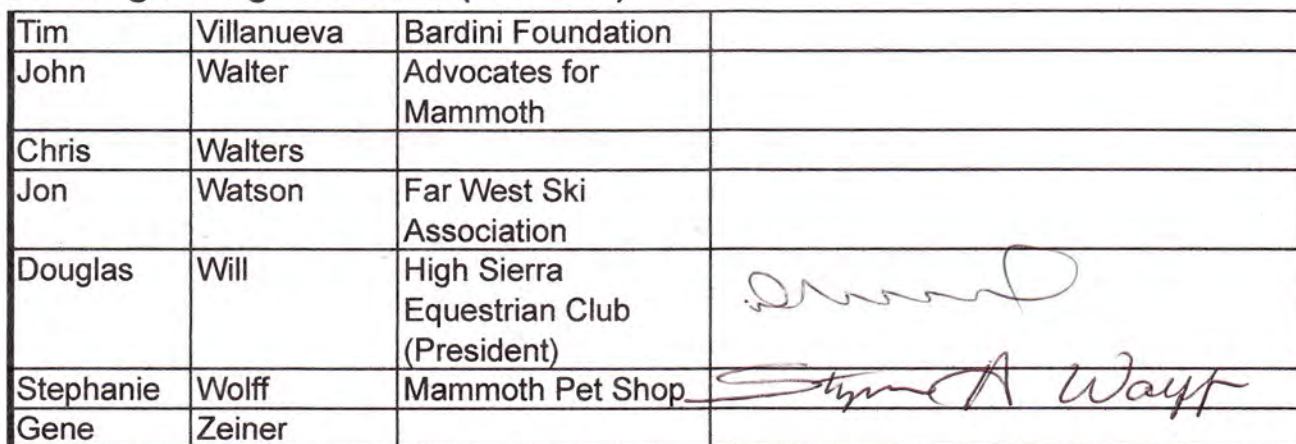 Tim Villanueva Bardini Foundation
John Walter Advocates for
Mammoth
Chris Walters
Jon Watson Far West Ski
Association
Douglas Will High Sierra
Equestrian Club
(President)
Stephanie Wolff Mammoth Pet Shop
Gene Zeiner